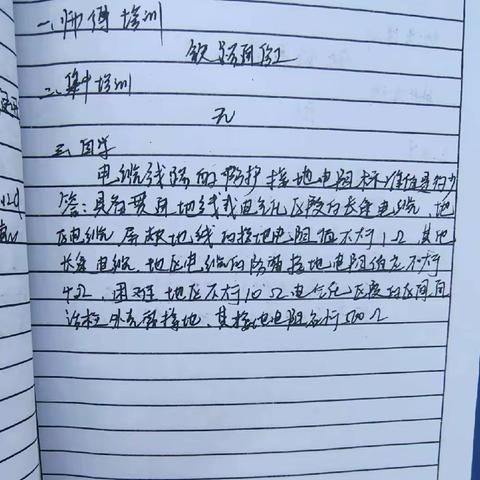 一、师傅培训
二、集中培训
无
三、自学
电缆线路的防护接地电阻标准值是多少
答：具备贯通地线或电气化区段的长途电缆、地
区电缆屏蔽地线的接地电阻值不大于1Ω，其他
长途电缆、地区电缆的防雷接地电阻值应不大于
4Ω，困难地区不大于10Ω电气化区段的区间
外壳 接地，其接地电阻 Ω